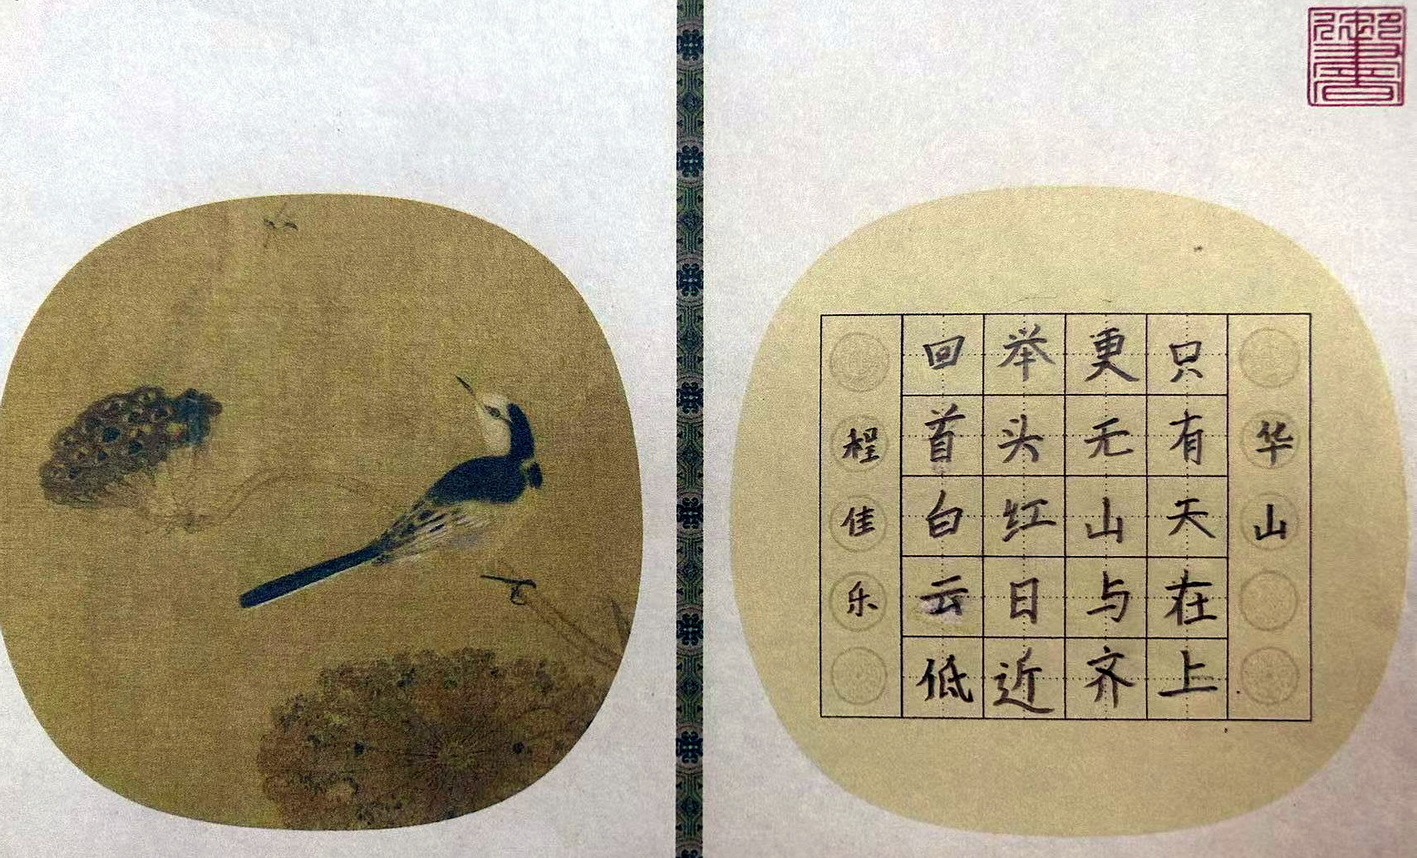 华山
只有天在上
更无山与齐
举头红日近
回首白云低
程佳乐